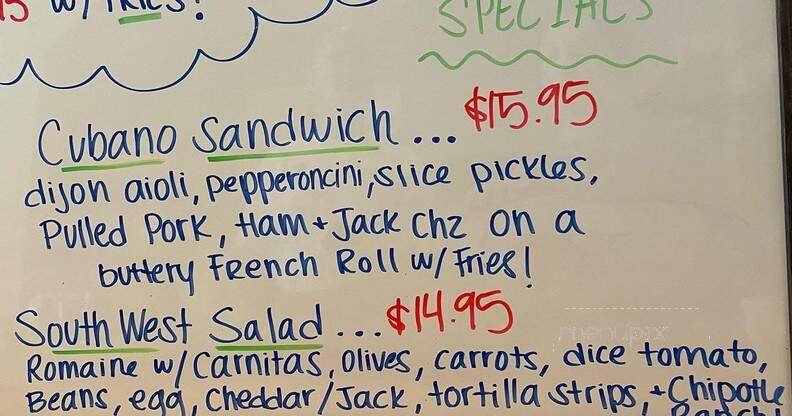 15 w/ FRIES!
SPECIALS
Cubano Sandwich ... $15.95
dijon aioli, pepperoncini, slice pickles,
Pulled Pork, Ham + Jack Chz on a
buttery French Roll w/ Fries!
South West Salad ... $14.95
Romaine w/ Carnitas, Olives, carrots, dice tomato,
Beans, egg, Cheddar/Jack, tortilla strips, + Chipotle
menupix